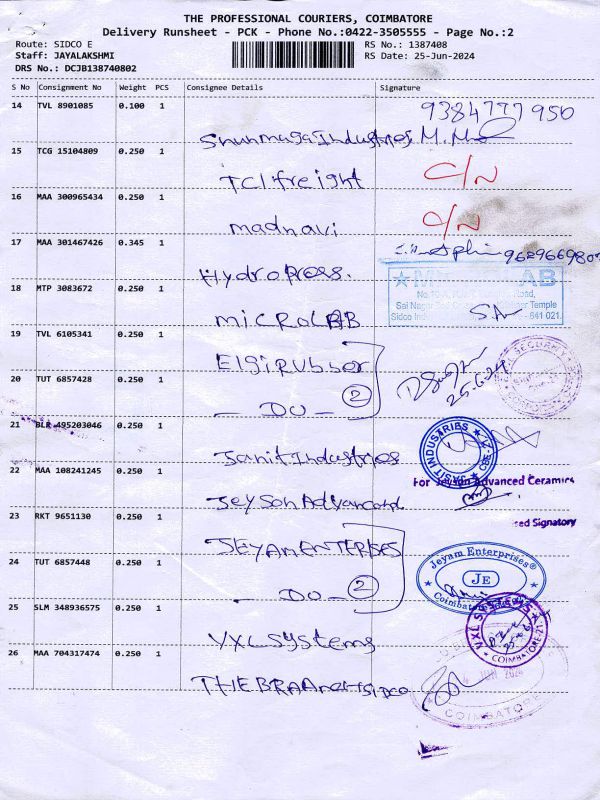 THE PROFESSIONAL COURIERS, COIMBATORE
Delivery Runsheet - PCK - Phone No.:0422-3505555 - Page No.:2
Route: SIDCO E
RS No.: 1387408
Staff: JAYALAKSHMI
RS Date: 25-Jun-2024
DRS No.: DCJB138740802
S No Consignment No Weight PCS Consignee Details Signature
14 TVL 8901085 0.100 1
9384777950
Shunmuga Industries
15 TCG 15104809 0.250 1
TCI freight C/N
16 MAA 300965434 0.250 1
madhavi C/N
17 MAA 301467426 0.345 1
Hydropress.
18 MTP 3083672 0.250 1
LAB
Road,
Sai Nagar Temple
Sidco 641 021.
MICROLAB
19 TVL 6105341 0.250 1
Elgi Rubber
20 TUT 6857428 0.250 1
25.6.24
SECURITY
- DO - 2
21 BLR 495203046 0.250 1
Sanit Industries
SASIT INDUSTRIES
22 MAA 108241245 0.250 1
For Jeyson Advanced Ceramics
Jeyson Advanced
23 RKT 9651130 0.250 1
sed Signatory
JEYAM ENTERPRISES
24 TUT 6857448 0.250 1
Jeyam Enterprises®
JE
Coimbatore
- DO - 2
25 SLM 348936575 0.250 1
VXL SYSTEMS
COIMBATORE-21
VXL Systems
26 MAA 704317474 0.250 1
JUN 2024
COIMBATORE
SIDCO